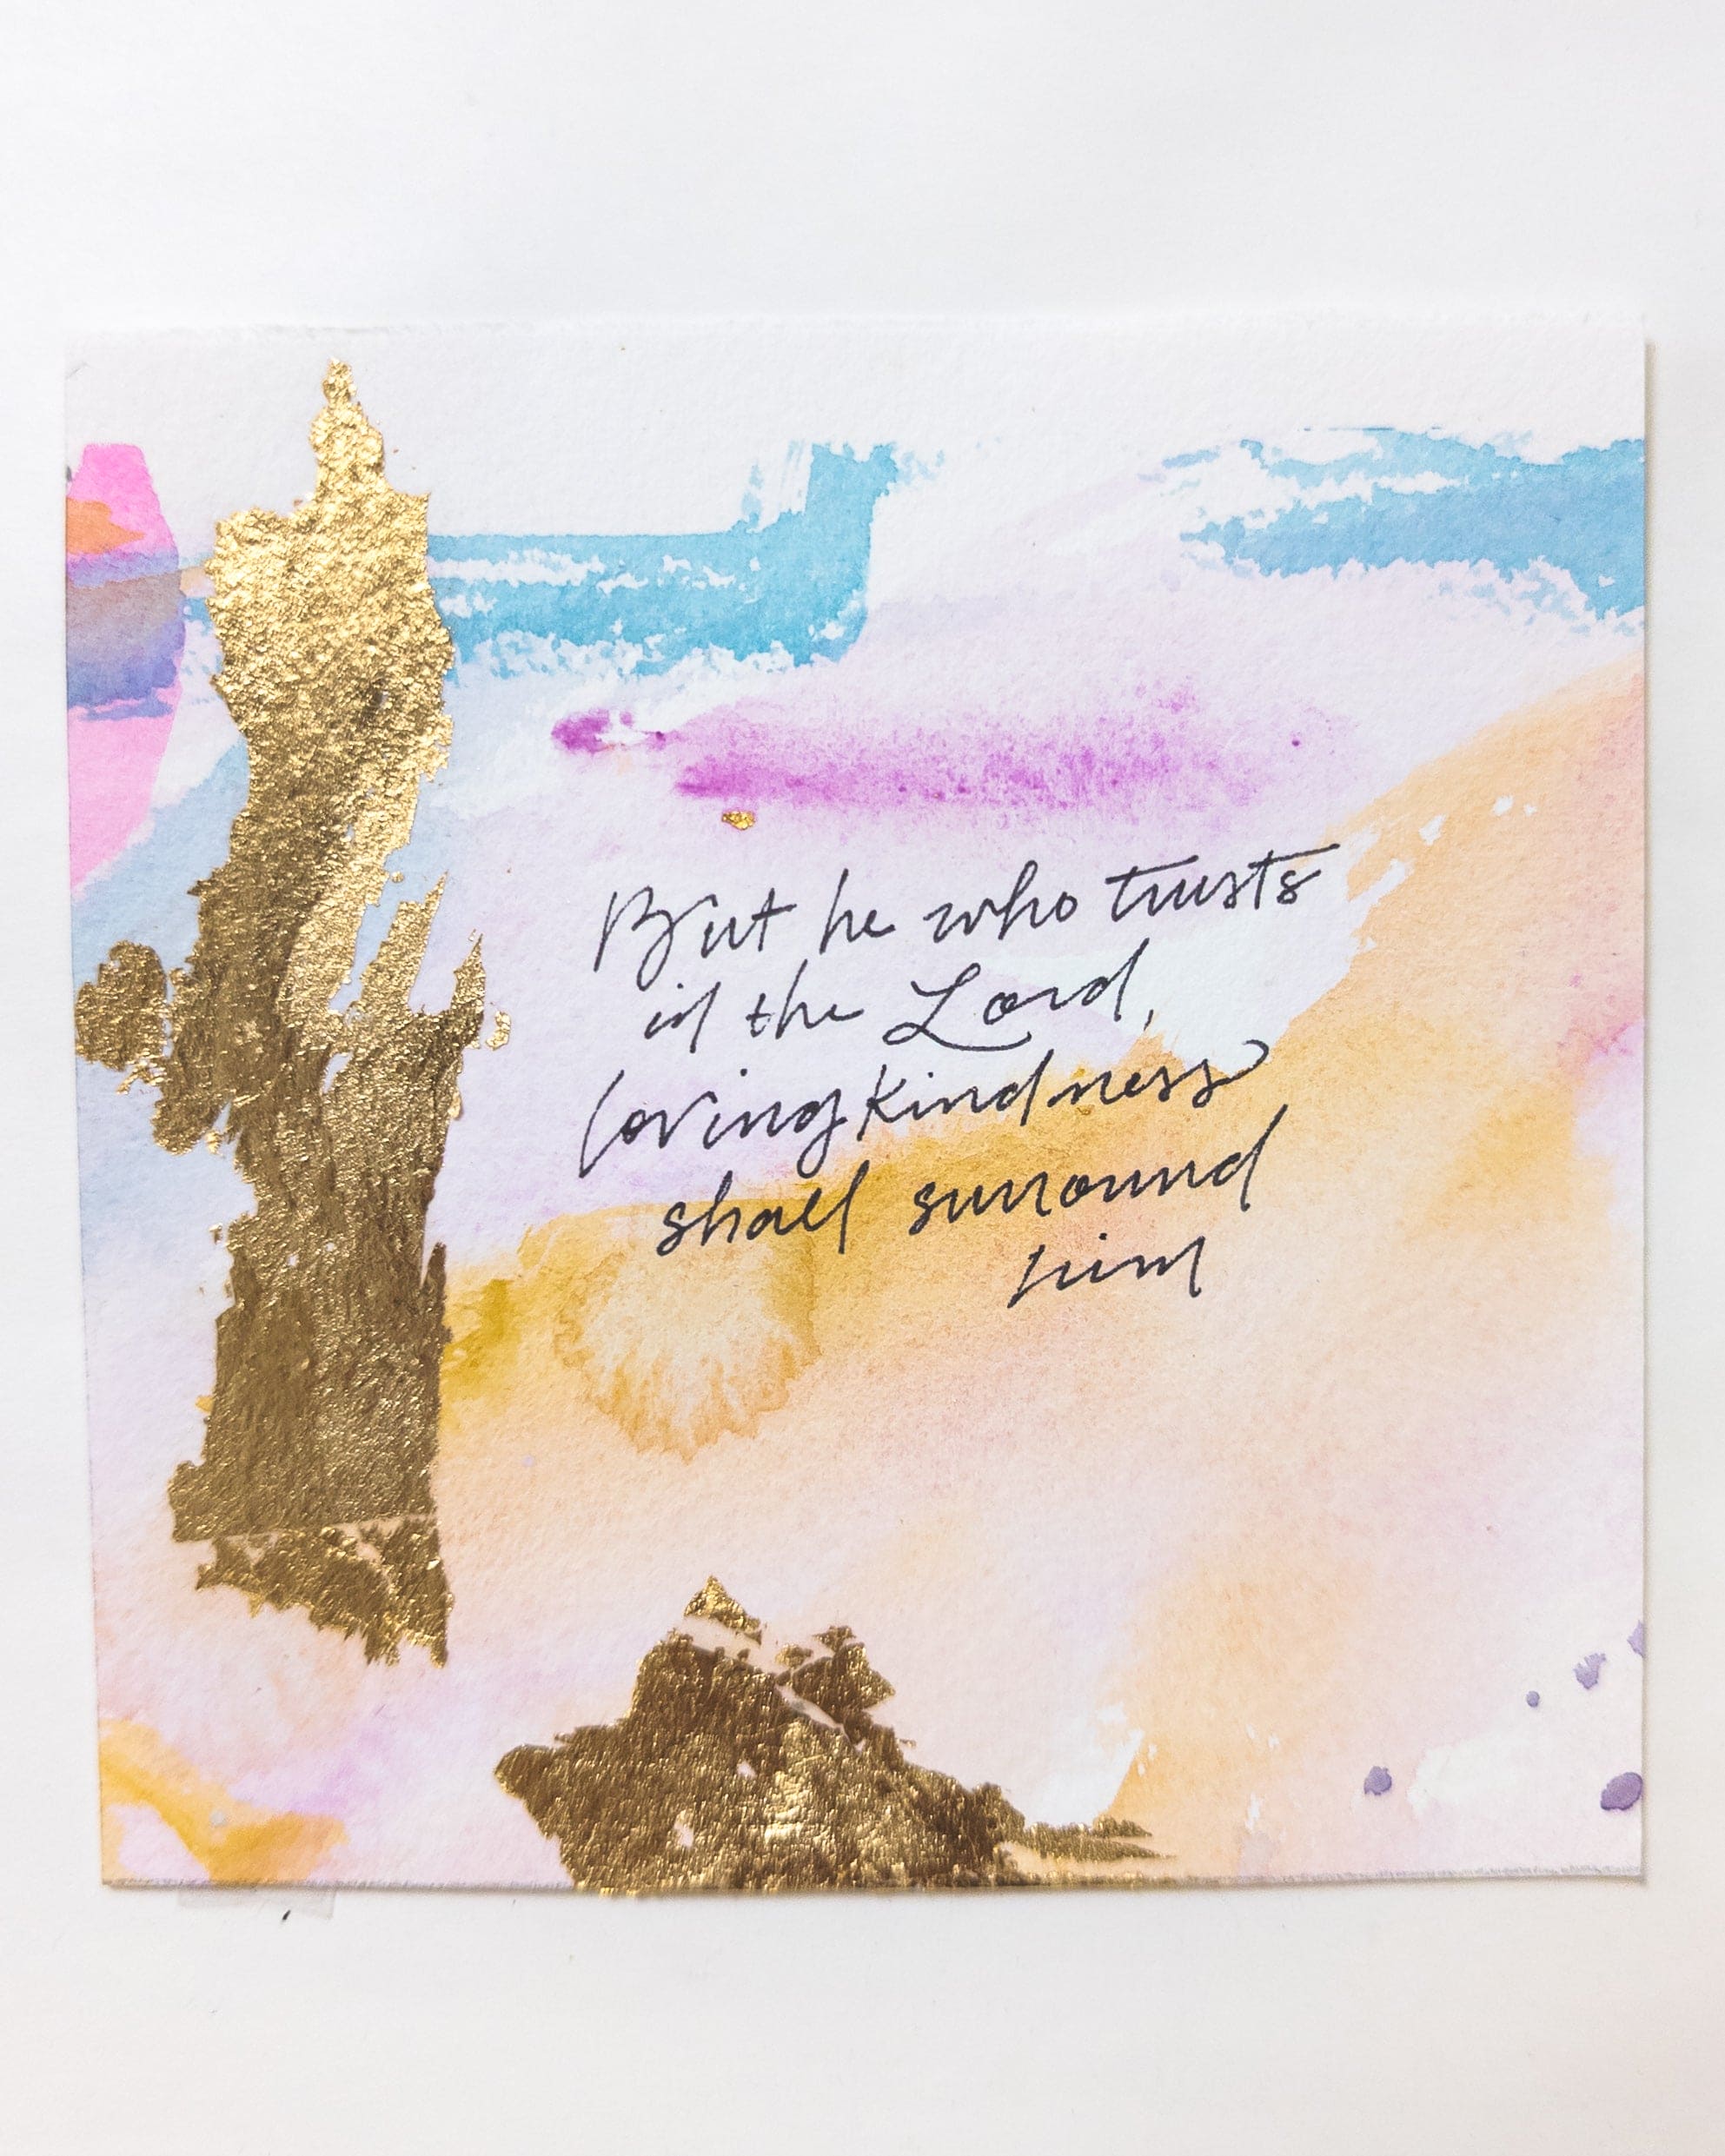 But he who trusts
in the Lord,
lovingkindness
shall surround
him